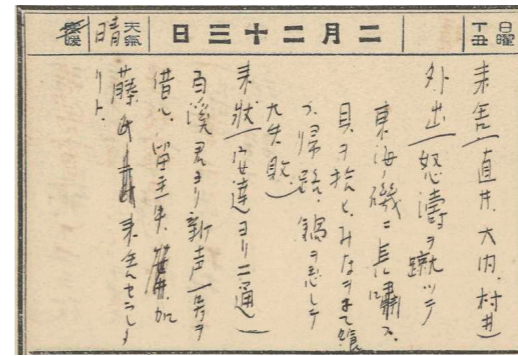 日曜
丁丑
二月二十三日
天気
晴
寒暖
来舎（直井、大内、村井）
外出（怒濤ヲ蹴ツテ
東海ノ磯ニ長嘯ス、
貝ヲ拾ヒ、みなヲ
ヅ、帰路、鍋ヲ忘レテ
大失敗）
来状（安達ヨリ二通）
百渓君ヨリ新声一号ヲ
借ル、留主中、加
藤氏来舎セラレシ
リト、